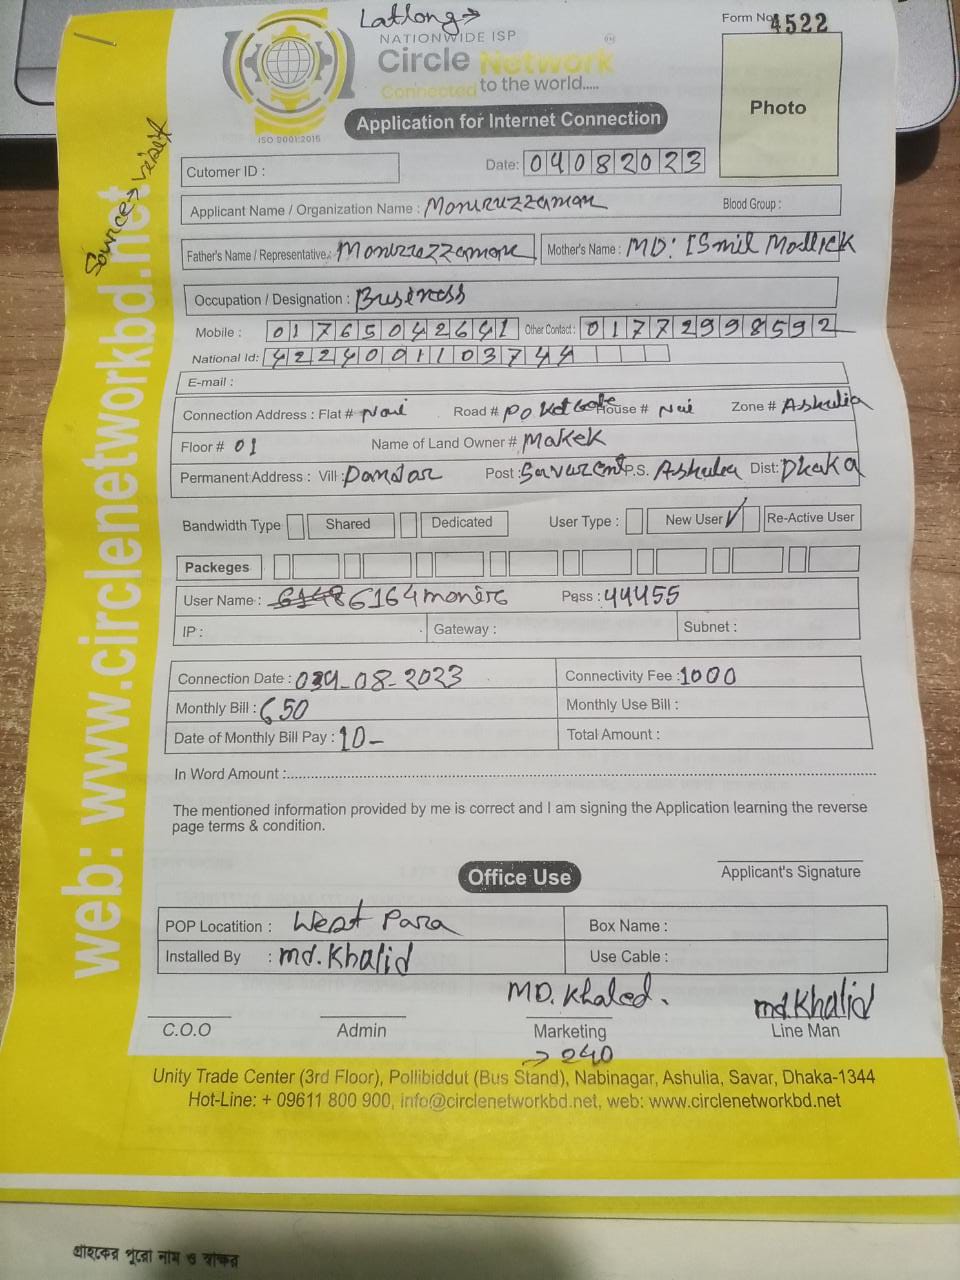 Latlong →
Form No. 4522
NATIONWIDE ISP
Circle Network
Connected to the world.....
ISO 9001:2015
Application for Internet Connection
Photo
Source → visit
web: www.circlenetworkbd.net
Cutomer ID :
Date: 04082023
Applicant Name / Organization Name : Moniruzzaman Blood Group :
Father's Name / Representative : Moniruzzaman Mother's Name : MD: ISmil Mollick
Occupation / Designation : Business
Mobile : 01765042641 Other Contact : 01772998592
National Id: 4224001103744
E-mail :
Connection Address : Flat # Road # Poket Gate House # Zone # Ashulia
Floor # 01 Name of Land Owner #
Permanent Address : Vill: Post : P.S. Ashulia Dist: Dhaka
Bandwidth Type Shared Dedicated User Type : New User ✓ Re-Active User
Packeges
User Name : 6148 6164monira Pass : 44455
IP : Gateway : Subnet :
Connection Date : 04-08-2023 Connectivity Fee : 1000
Monthly Bill : 650 Monthly Use Bill :
Date of Monthly Bill Pay : 10- Total Amount :
In Word Amount :
The mentioned information provided by me is correct and I am signing the Application learning the reverse
page terms & condition.
Applicant's Signature
Office Use
POP Locatition : West Para Box Name :
Installed By : md. Khalid Use Cable :
MD. Khaled. md. Khalid
C.O.O Admin Marketing Line Man
→ 240
Unity Trade Center (3rd Floor), Pollibiddut (Bus Stand), Nabinagar, Ashulia, Savar, Dhaka-1344
Hot-Line: + 09611 800 900, info@circlenetworkbd.net, web: www.circlenetworkbd.net
গ্রাহকের পুরো নাম ও স্বাক্ষর